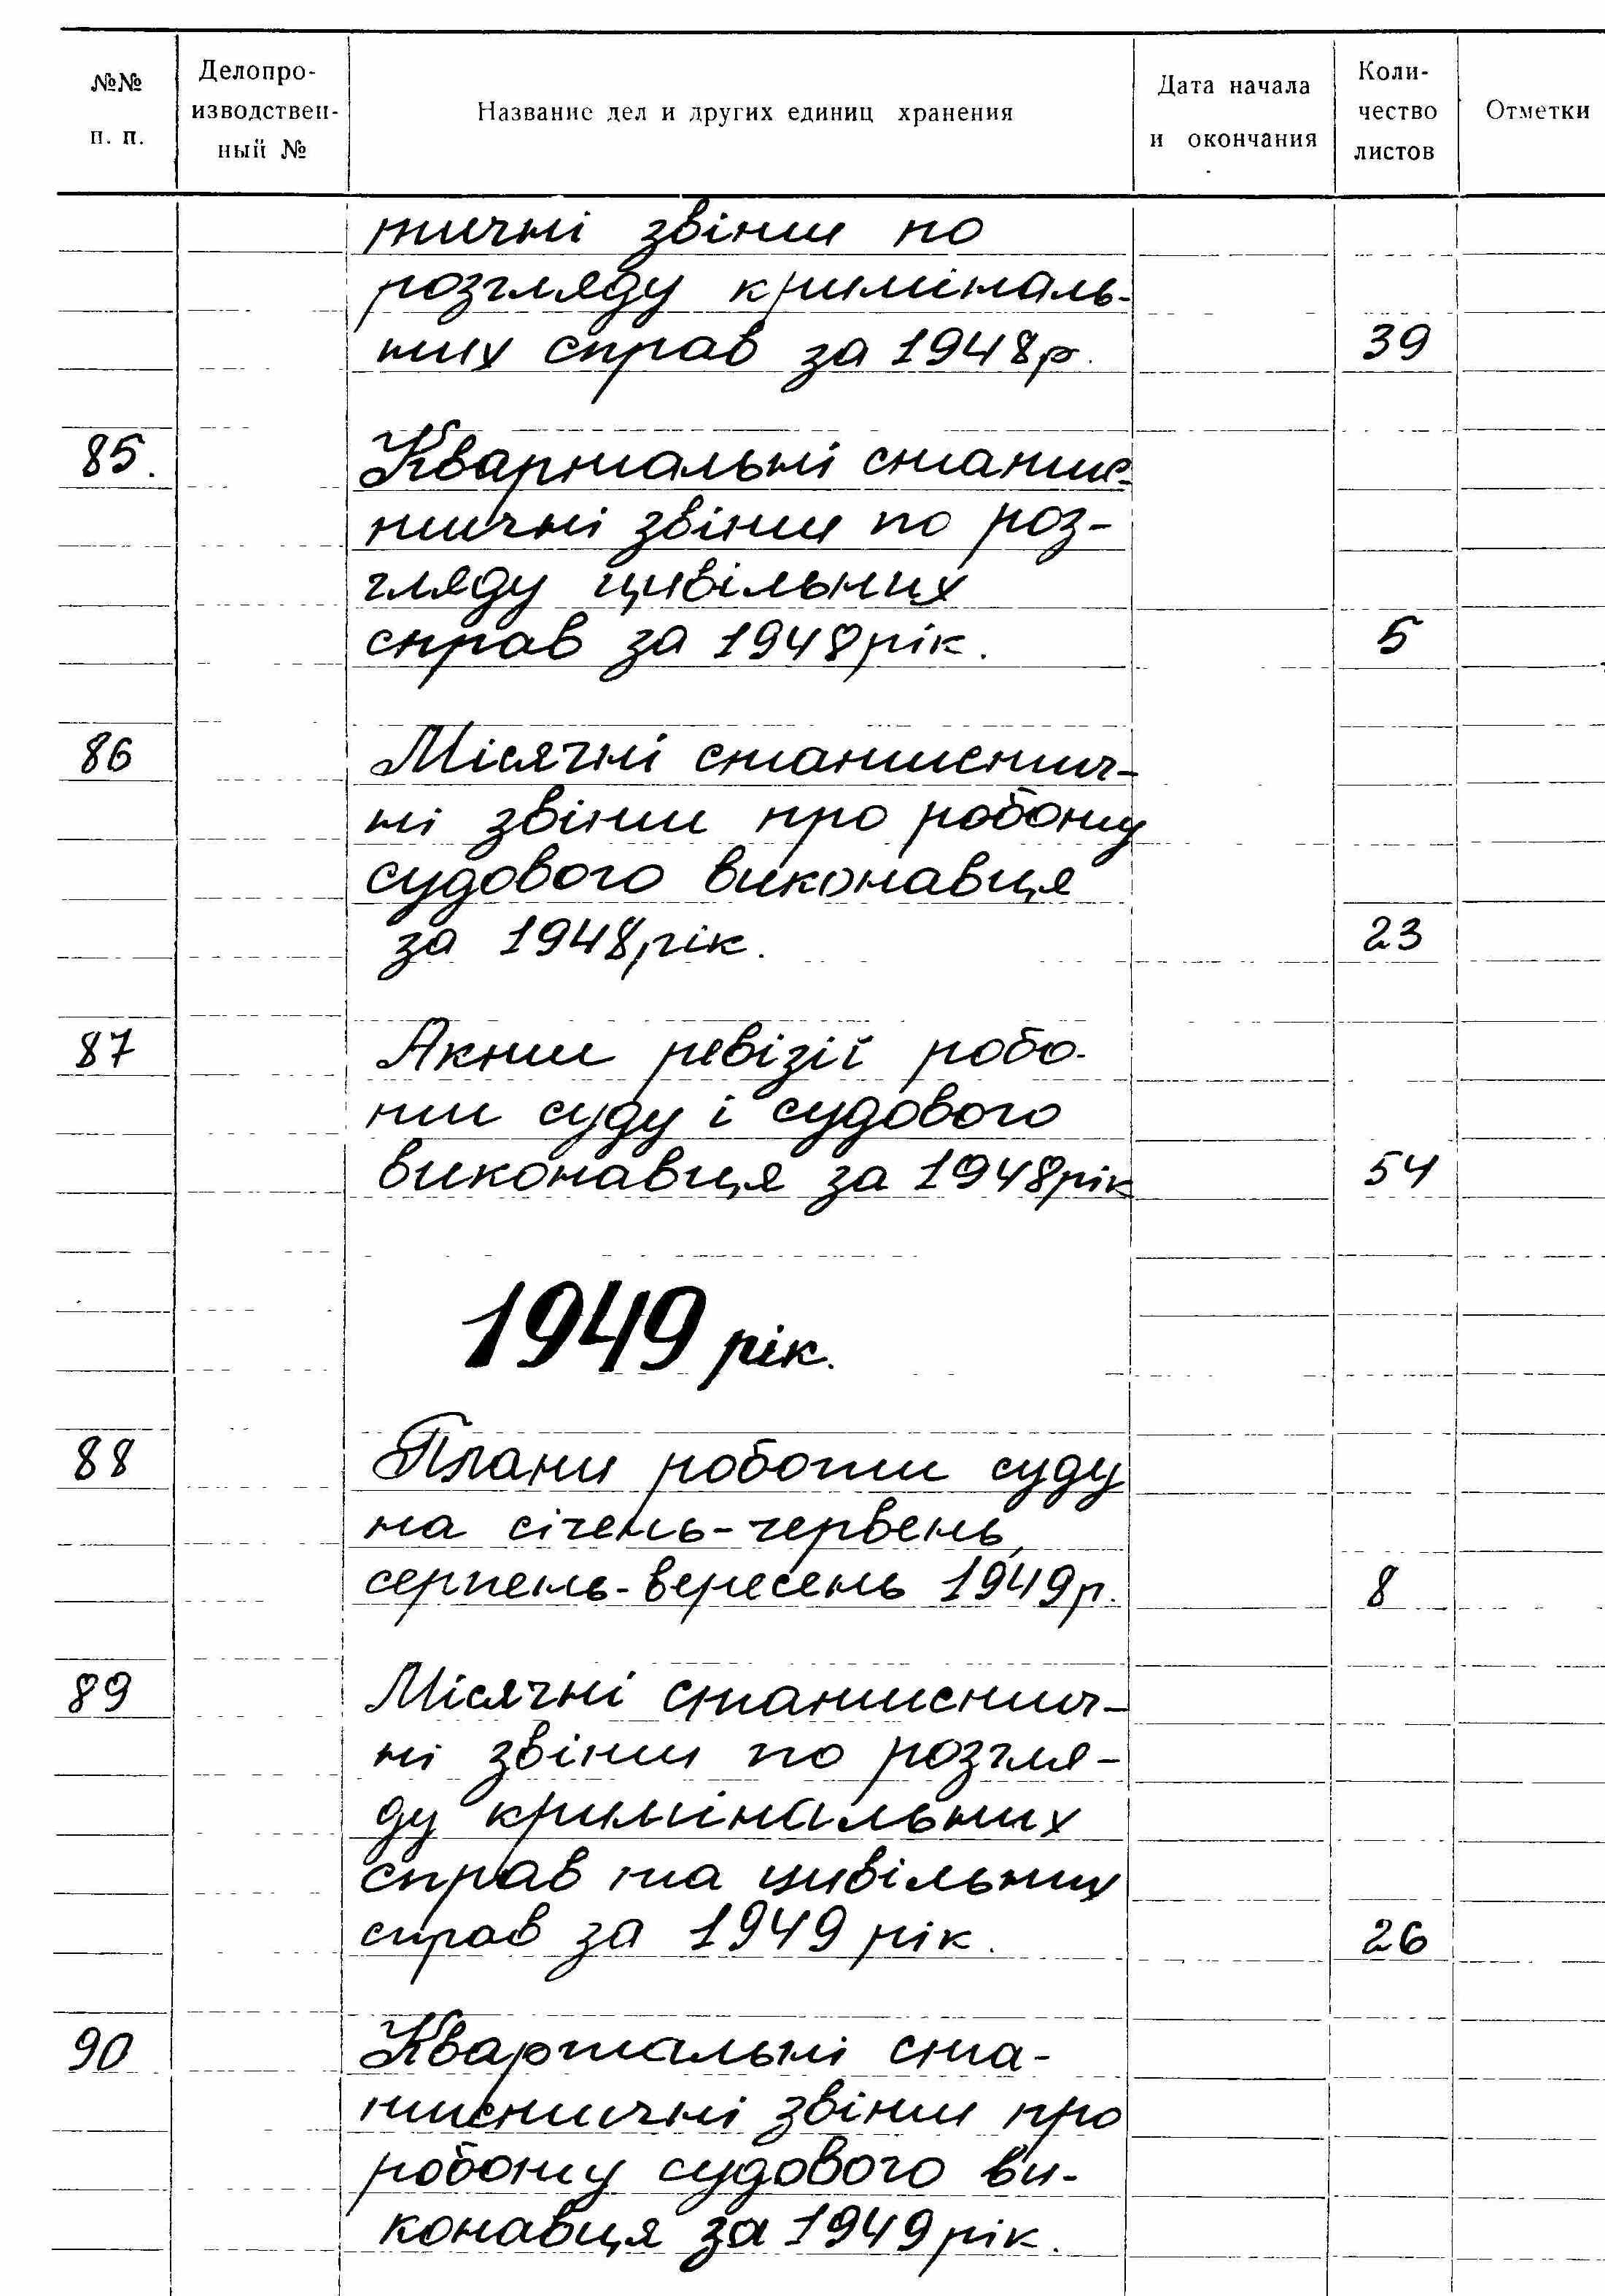 №№ п. п.
Делопро-
изводствен-
ный №
Название дел и других единиц хранения
Дата начала
и окончания
Коли-
чество
листов
Отметки
тичні звіти по
розгляду криміналь-
них справ за 1948р. 39
85. Квартальні статис-
тичні звіти по роз-
гляду цивільних
справ за 1948рік. 5
86 Місячні статистич-
ні звіти про роботу
судового виконавця
за 1948рік. 23
87 Акти ревізії робо-
ти суду і судового
виконавця за 1948рік 54
1949 рік.
88 Плани роботи суду
на січень-червень,
серпень-вересень 1949р. 8
89 Місячні статистич-
ні звіти по розгля-
ду кримінальних
справ та цивільних
справ за 1949 рік. 26
90 Квартальні ста-
тистичні звіти про
роботу судового ви-
конавця за 1949рік.